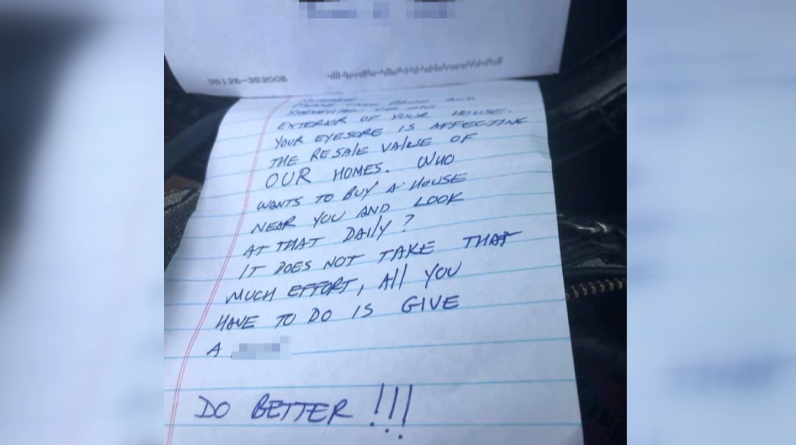 35126-352005
PLEASE TAKE PRIDE AND
EXTERIOR OF YOUR HOUSE.
YOUR EYESORE IS AFFECTING
THE RESALE VALUE OF
OUR HOMES. WHO
WANTS TO BUY A HOUSE
NEAR YOU AND LOOK
AT THAT DAILY?
IT DOES NOT TAKE THAT
MUCH EFFORT, All YOU
HAVE TO DO IS GIVE
A
DO BETTER!!!